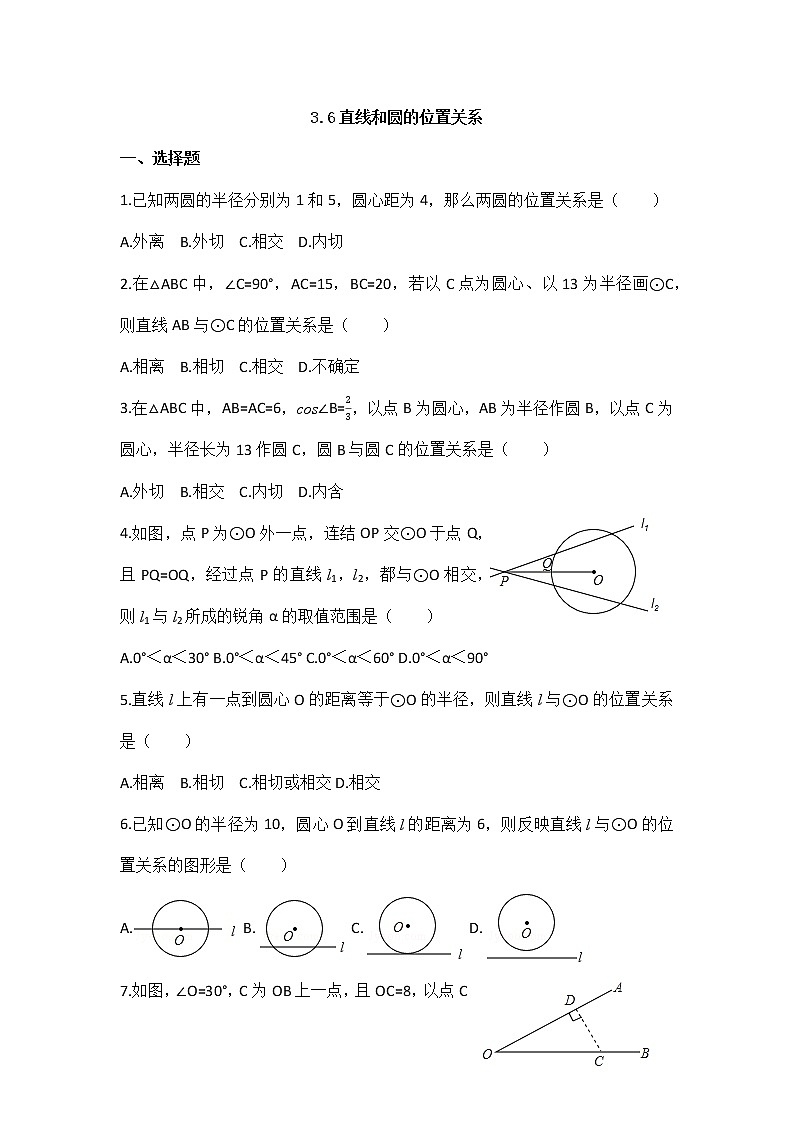 3.6直线和圆的位置关系
一、选择题
1.已知两圆的半径分别为1和5，圆心距为4，那么两圆的位置关系是（  ）
A.外离 B.外切 C.相交 D.内切
2.在△ABC中，∠C=90°，AC=15，BC=20，若以C点为圆心、以13为半径画⊙C，
则直线AB与⊙C的位置关系是（  ）
A.相离 B.相切 C.相交 D.不确定
3.在△ABC中，AB=AC=6，cos∠B=2/3，以点B为圆心，AB为半径作圆B，以点C为
圆心，半径长为13作圆C，圆B与圆C的位置关系是（  ）
A.外切 B.相交 C.内切 D.内含
4.如图，点P为⊙O外一点，连结OP交⊙O于点Q，
且PQ=OQ，经过点P的直线l₁，l₂，都与⊙O相交，
则l₁与l₂所成的锐角α的取值范围是（  ）
l₁
Q
P
O
l₂
A.0°＜α＜30° B.0°＜α＜45° C.0°＜α＜60° D.0°＜α＜90°
5.直线l上有一点到圆心O的距离等于⊙O的半径，则直线l与⊙O的位置关系
是（  ）
A.相离 B.相切 C.相切或相交D.相交
6.已知⊙O的半径为10，圆心O到直线l的距离为6，则反映直线l与⊙O的位
置关系的图形是（  ）
A. O l B. O l C. O l D. O l
7.如图，∠O=30°，C为OB上一点，且OC=8，以点C
A
D
O
C
B